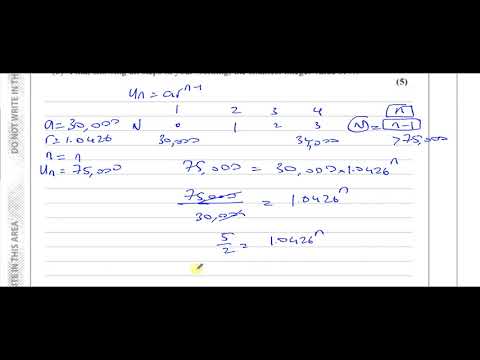 (5)
Un = ar^n-1
1 2 3 4 n
a = 30,000 N 0 1 2 3 (N) = n-1
r = 1.0426 30,000 34,000 > 75,000
n = n
Un = 75,000 75,000 = 30,000 × 1.0426^n
75,000 / 30,000 = 1.0426^n
5/2 = 1.0426^n
DO NOT WRITE IN THIS AREA